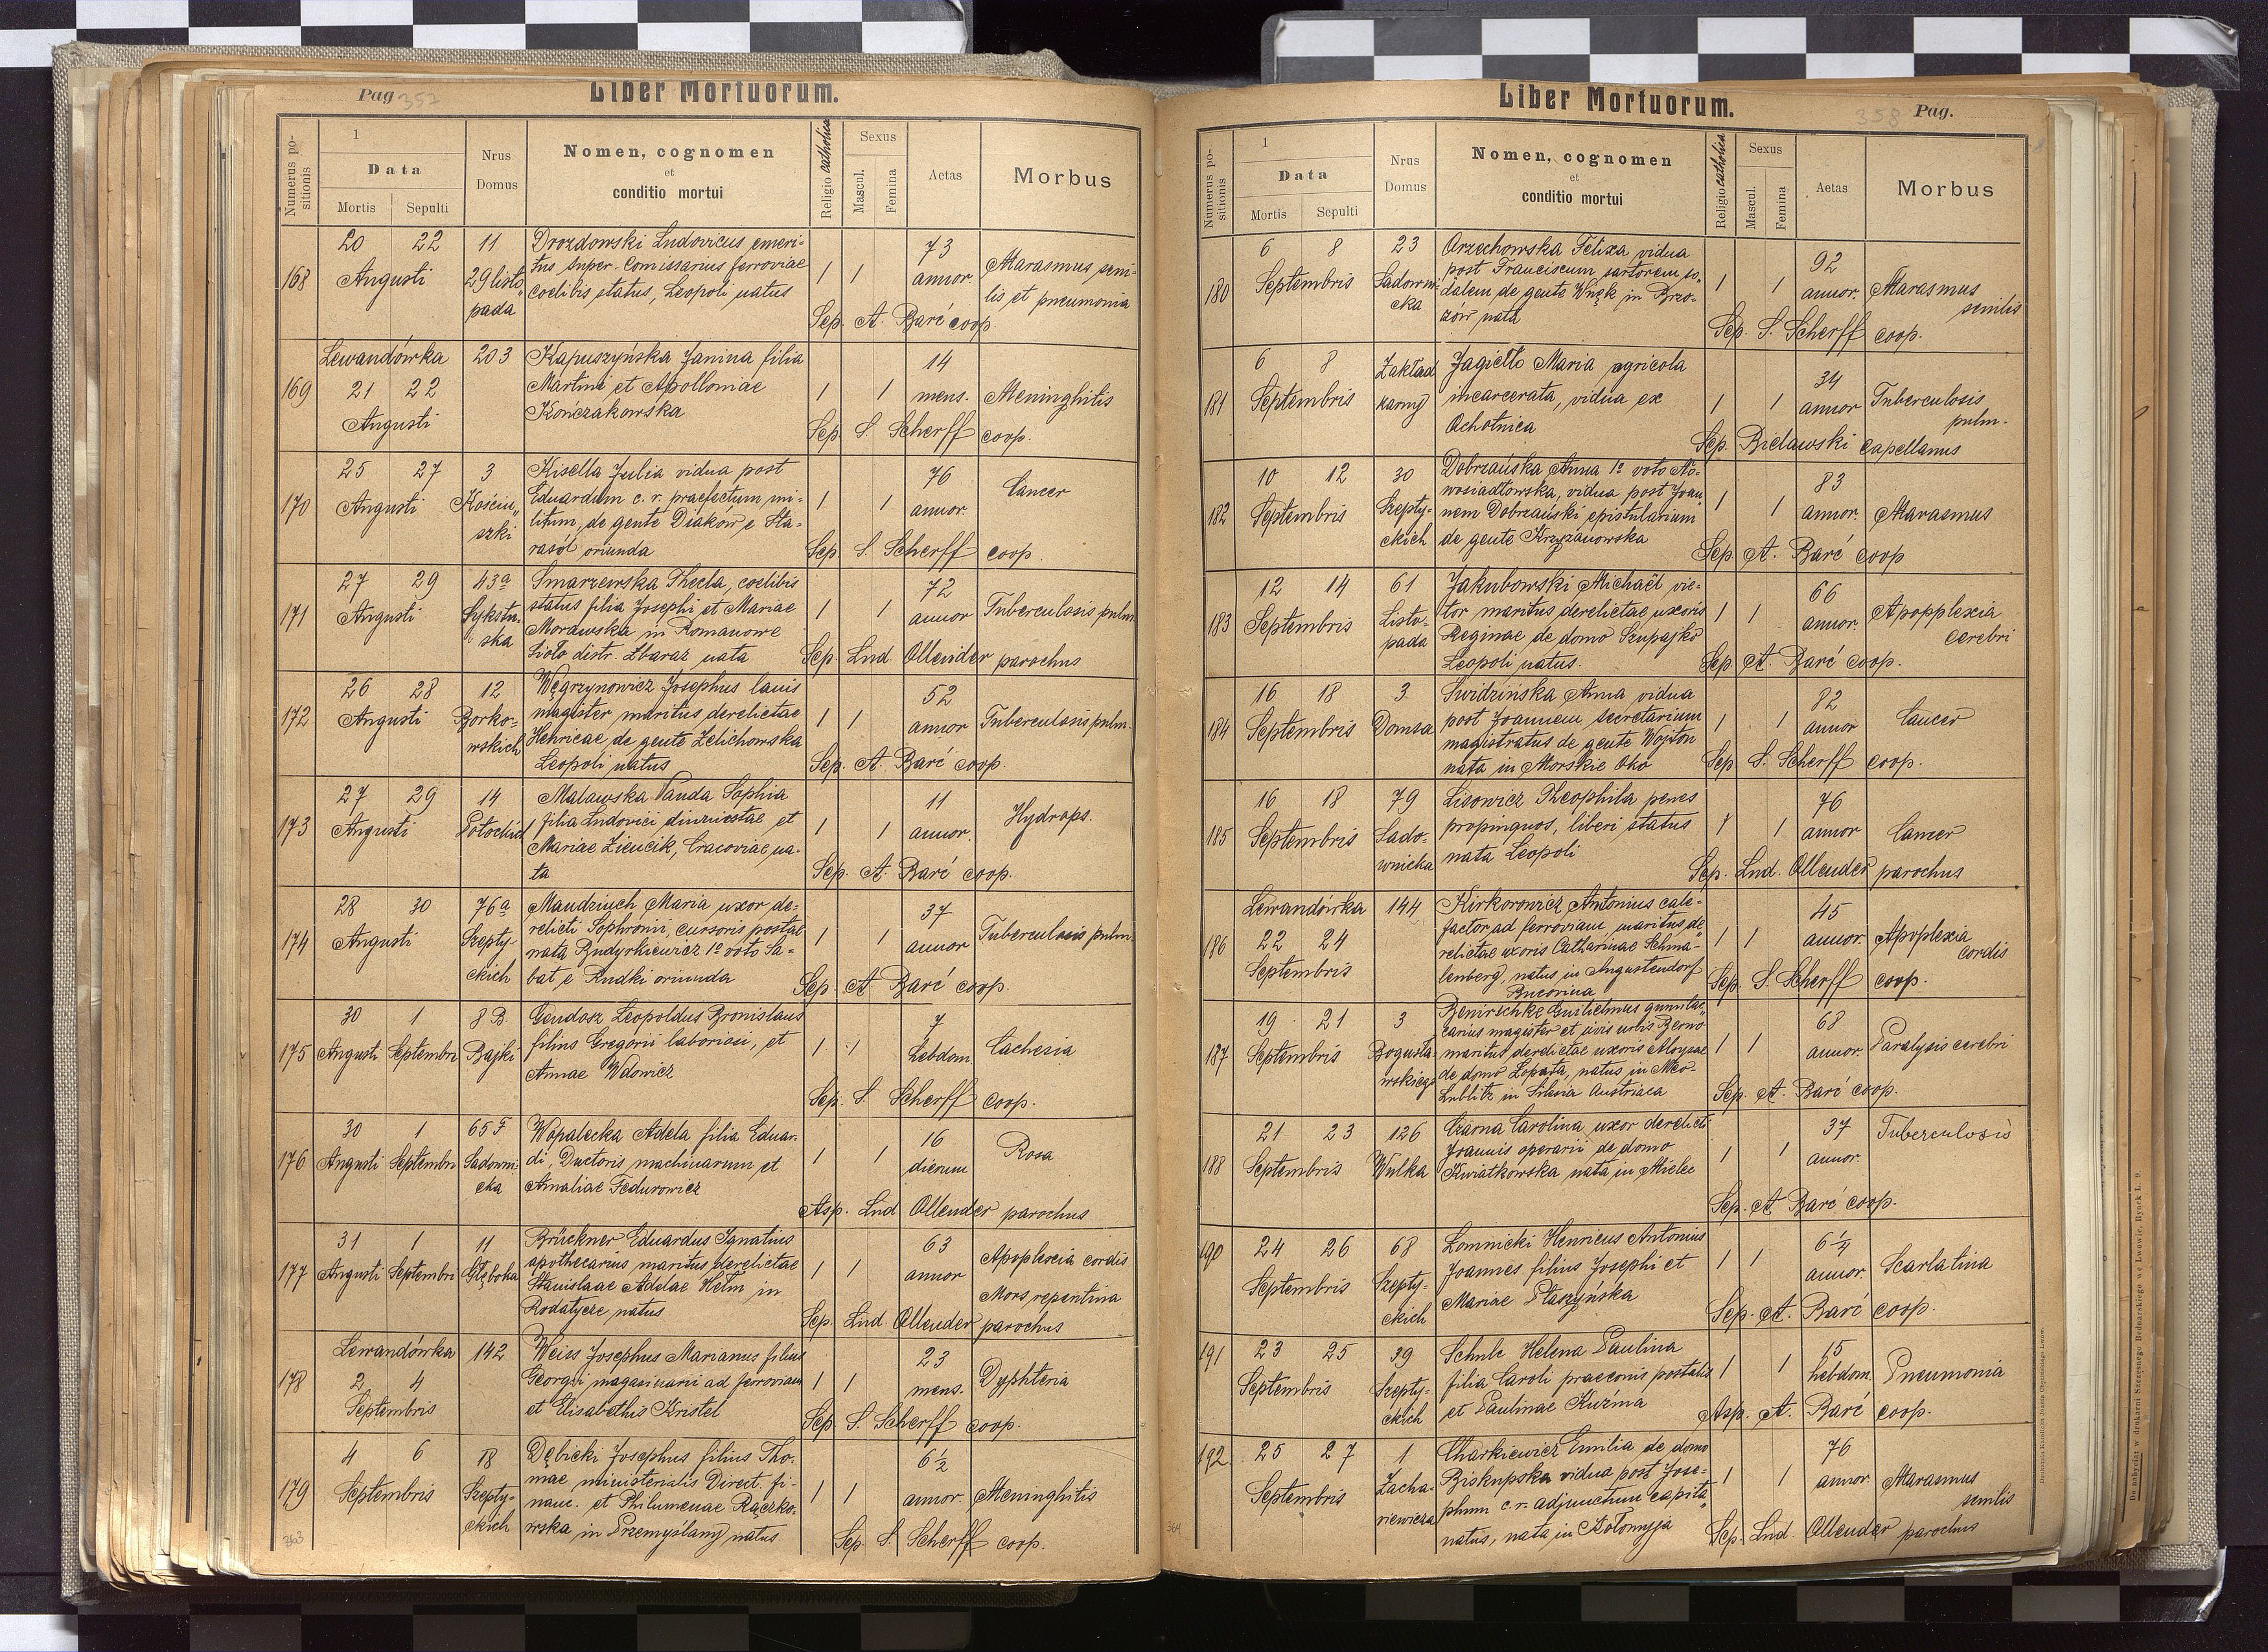 Pag 357
Liber Mortuorum.
Numerus positionis
1
Data
Mortis Sepulti
Nrus Domus
Nomen, cognomen
et
conditio mortui
Religio catholica
Sexus
Mascul. Femina
Aetas
Morbus
168
20 22
Augusti
11
29 listo„
pada
Drozdowski Ludovicus, emeri=
tus super-Comissarius ferroviae
coelibis status, Leopoli natus
1 1
73
annor.
Marasmus seni-
lis et pneumonia
Sep. A. Barć coop.
169
Lewandówka
21 22
Augusti
203
Kapuszyńska Janina filia
Martini et Apolloniae
Kończakowska
1 1
14
mens.
Meninghitis
Sep. S. Scherff coop.
170
25 27
Augusti
3
Kościu„
szki
Kisella Julia vidua post
Eduardum c. r. praefectum mi-
litum, de gente Diaków e Sta-
rasól oriunda
1 1
76
annor.
Cancer
Sep. S. Scherff coop.
171
27 29
Augusti
43a
Sykstu„
ska
Smarzewska Thecla, coelibis
status filia Josephi et Mariae
Morawska in Romanowe
Sioło distr. Zbaraz nata
1 1
72
annor
Tuberculosis pulm.
Sep. Lud Ollender parochus
172
26 28
Augusti
12
Borko=
wskich
Węgrzynowicz Josephus lanis
magister maritus derelictae
Henricae de gente Zelichowska
Leopoli natus
1 1
52
annor
Tuberculosis pulm.
Sep. A. Barć coop.
173
27 29
Augusti
14
Potockich
Malawska Vanda Sophia
filia Ludovici diurnistae et
Mariae Zieńcik, Cracoviae na-
ta
1 1
11
annor.
Hydrops.
Sep. A. Barć coop.
174
28 30
Augusti
76a
Szepty-
ckich
Maudziuch Maria uxor de-
relicti Sophronii, cursoris postae
nata Budyrkiewicz 1o voto Sa-
bat, e Rudki oriunda
1 1
37
annor
Tuberculosis pulm.
Sep. A Barć coop.
175
30 1
Augusti Septembri
8 B.
Bajki
Gendosz Leopoldus Bronislaus
filius Gregorii laboriosi, et
Annae Wdowicz
1 1
7
hebdom
Cachexia
Sep. S. Scherff coop.
176
30 1
Augusti Septembri
65 F
Sadowni
cka
Wopalecka Adela filia Eduar-
di, Ductoris machinarum et
Amaliae Fedurowicz
1 1
16
dierum
Rosa
Asp. Lud Ollender parochus
177
31 1
Augusti Septembri
11
Głęboka
Brückner Eduardus Ignatius
apothecarius maritus derelictae
Stanislaae Adelae Helm in
Rodatycze natus
1 1
63
annor
Apoplexia cordis
Mors repentina
Sep. Lud. Ollender parochus
178
Lewandówka
2 4
Septembris
142
Weiss Josephus Marianus filius
Georgii magasinarii ad ferroviam
et Elisabethis Kristel
1 1
23
mens.
Dyphteria
Sep. S. Scherff coop.
179
4 6
Septembris
18
Szepty-
ckich
Dębicki Josephus filius Tho-
mae ministerialis Direct. fi-
nanc. et Philumenae Rączko-
wska in Przemyślany natus
1 1
6 1/2
annor.
Meninghitis
Sep. S. Scherff coop.
363
Liber Mortuorum.
358 Pag.
Numerus positionis
1
Data
Mortis Sepulti
Nrus Domus
Nomen, cognomen
et
conditio mortui
Religio catholica
Sexus
Mascul. Femina
Aetas
Morbus
180
6 8
Septembris
23
Sadowni-
cka
Orzechowska Felixa vidua
post Franciscum sartorem so„
dalem de gente Wnęk in Brzo-
zów nata
1 1
92
annor.
Marasmus
senilis
Sep. S. Scherff coop.
181
6 8
Septembris
Zakład
karny
Jagiełło Maria agricola
incarcerata, vidua ex
Ochotnica
1 1
34
annor
Tuberculosis
pulm.
Sep. Bielawski capellanus
182
10 12
Septembris
30
Szepty-
ckich
Dobrzańska Anna 1o voto No-
wosiadłowska, vidua post Joan„
nem Dobrzański epistularium
de gente Krzyżanowska
1 1
83
annor.
Marasmus
Sep. A. Barć coop
183
12 14
Septembris
61
Listo-
pada
Jakubowski Michaël vie-
tor maritus derelictae uxoris
Reginae de domo Szupajko
Leopoli natus.
1 1
66
annor.
Apopplexia
cerebri
Sep. A. Barć coop.
184
16 18
Septembris
3
Domsa
Swidzińska Anna vidua
post Joannem secretarium
magistratus de gente Wojton
nata in Morskie Oko
1 1
82
annor
Cancer
Sep. S. Scherff coop.
185
16 18
Septembris
79
Sado-
wnicka
Lisowicz Theophila penes
propinquos, liberi status
nata Leopoli
1 1
76
annor
Cancer
Sep. Lud. Ollender parochus
186
Lewandówka
22 24
Septembris
144
Kirkorowicz Antonius cale-
factor ad ferroviam, maritus de„
relictae uxoris Catharinae Schma-
lenberg, natus in Augustendorf
Bucovina
1 1
45
annor.
Apoplexia
cordis
Sep. S. Scherff coop.
187
19 21
Septembris
3
Bogusła-
wskiego
Benirschke Guilielmus
carius magister et civis urbis Berno
maritus derelictae uxoris Aloysae
de domo Lopata, natus in Meo-
Lublitz in Silesia Austriaca
1 1
68
annor.
Paralysis cerebri
Sep. A. Barć coop.
188
21 23
Septembris
126
Wulka
Czarna Carolina uxor derelicti
Joannis operarii de domo
Kwiatkowska nata in Mielec
1 1
37
annor.
Tuberculosis
Sep. A Barć coop.
190
24 26
Septembris
68
Szepty-
ckich
Lomnicki Henricus Antonius
Joannes filius Josephi et
Mariae Płaszyńska
1 1
6 1/4
annor.
Scarlatina
Sep. A. Barć coop.
191
23 25
Septembris
39
Szepty-
ckich
Schulc Helena Paulina
filia Caroli praeconis postalis
et Paulinae Kuźma
1 1
15
hebdom.
Pneumonia
Asp. A. Barć coop.
192
25 27
Septembris
1
Zacha-
riewicza
Charkiewicz Emilia de domo
Biskupska vidua post Jose-
phum c. r. adjunctum capita„
natus, nata in Kołomyja
1 1
76
annor.
Marasmus
senilis
Sep. Lud. Ollender parochus
364
Do nabycia w drukarni Szczęsnego Bednarskiego we Lwowie, Rynek L. 9.